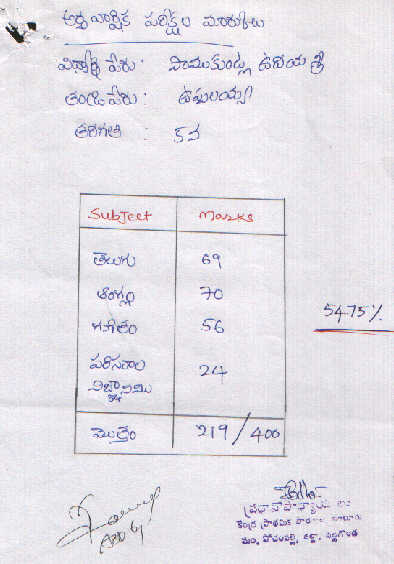 అర్ధ వార్షిక పరీక్షల మార్కులు
విద్యార్థి పేరు : పాముకుంట్ల ఉదయ శ్రీ
తండ్రి పేరు :
తరగతి : 5వ
Subject Marks
తెలుగు 69
ఆంగ్లం 70
గణితం 56
పరిసరాల
విజ్ఞానము 24
మొత్తం 219/400
5475%
ప్రధానోపాధ్యాయు
కేంద్ర ప్రాథమిక పాఠశాల
మం. పోచంపల్లి, జిల్లా. నల్లగొండ